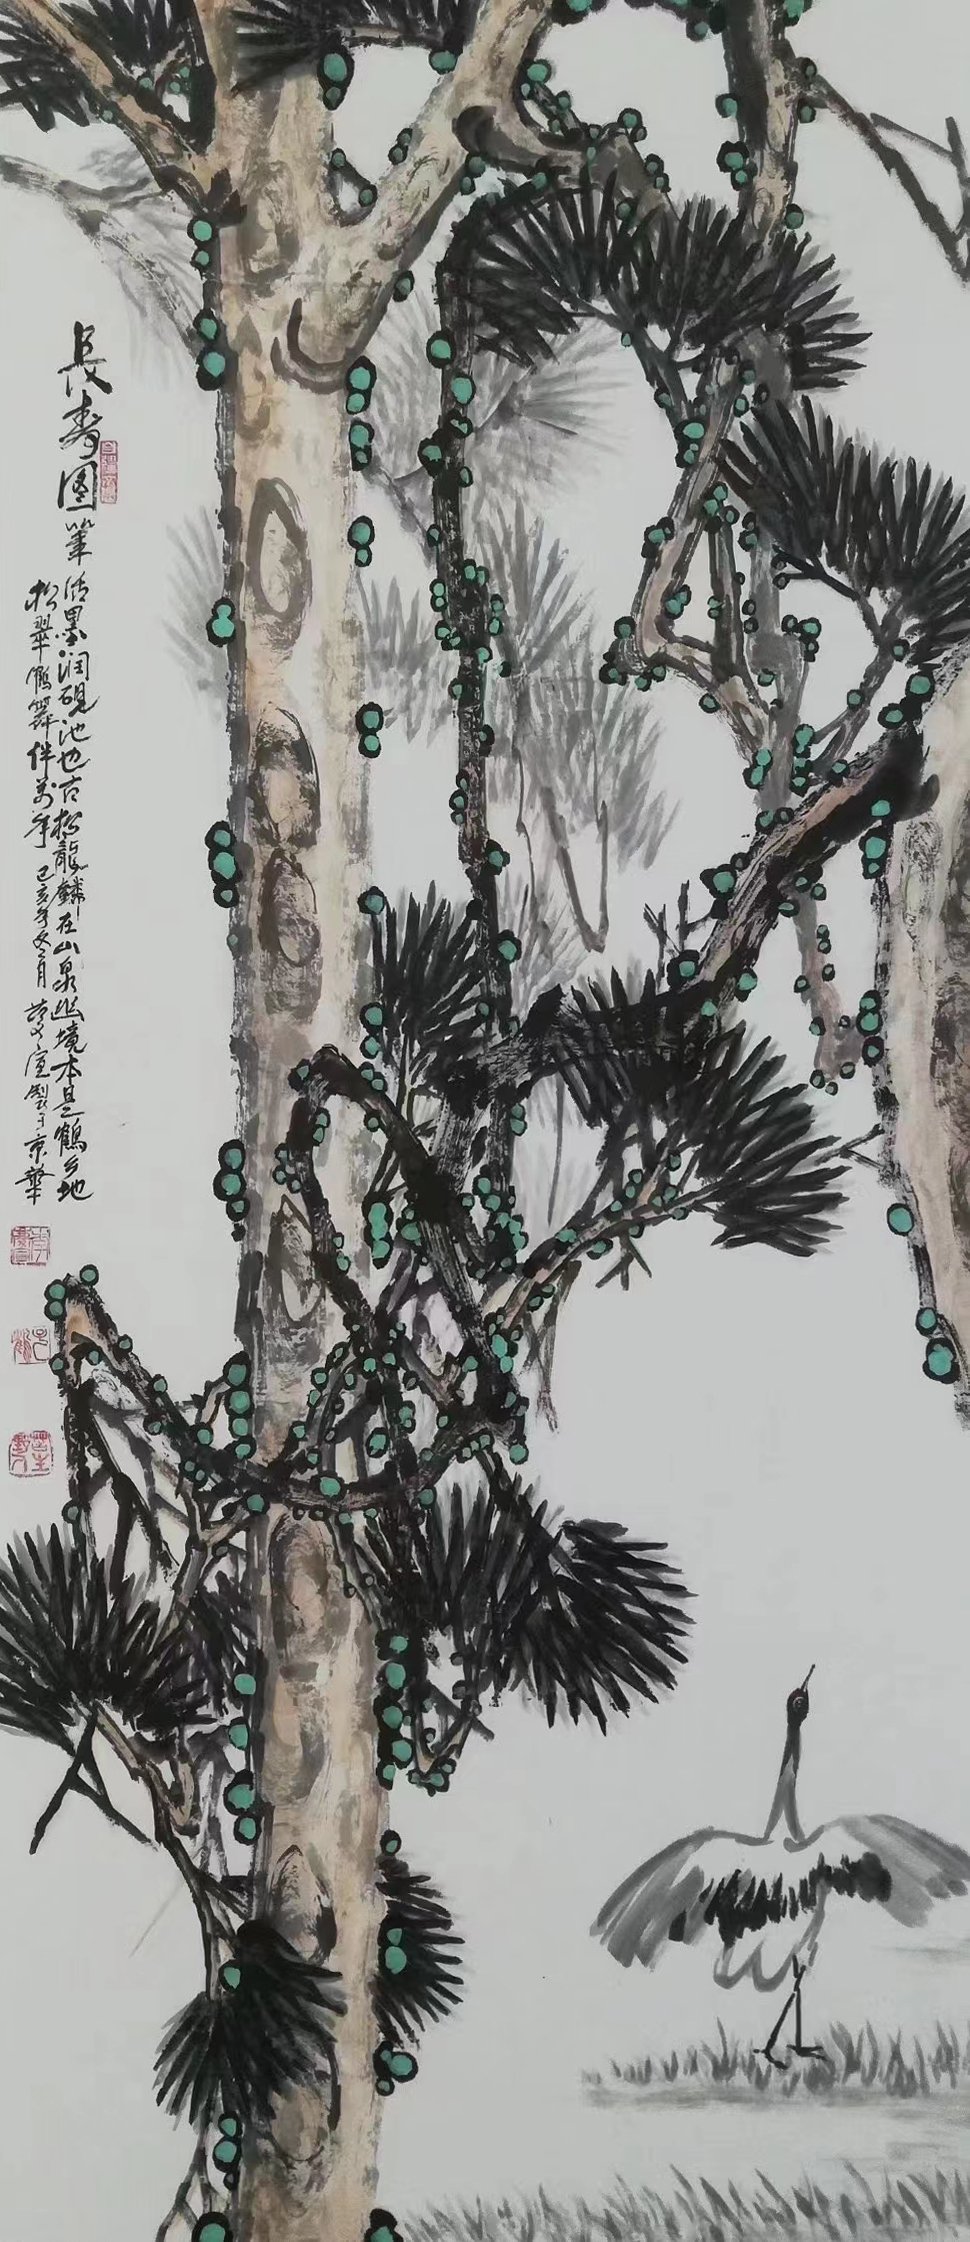 長壽圖
筆法墨润砚池也古松龍鳞在山泉幽境本是鶴乡地
松翠鶴舞伴万年 己亥年冬月 宣製于京華